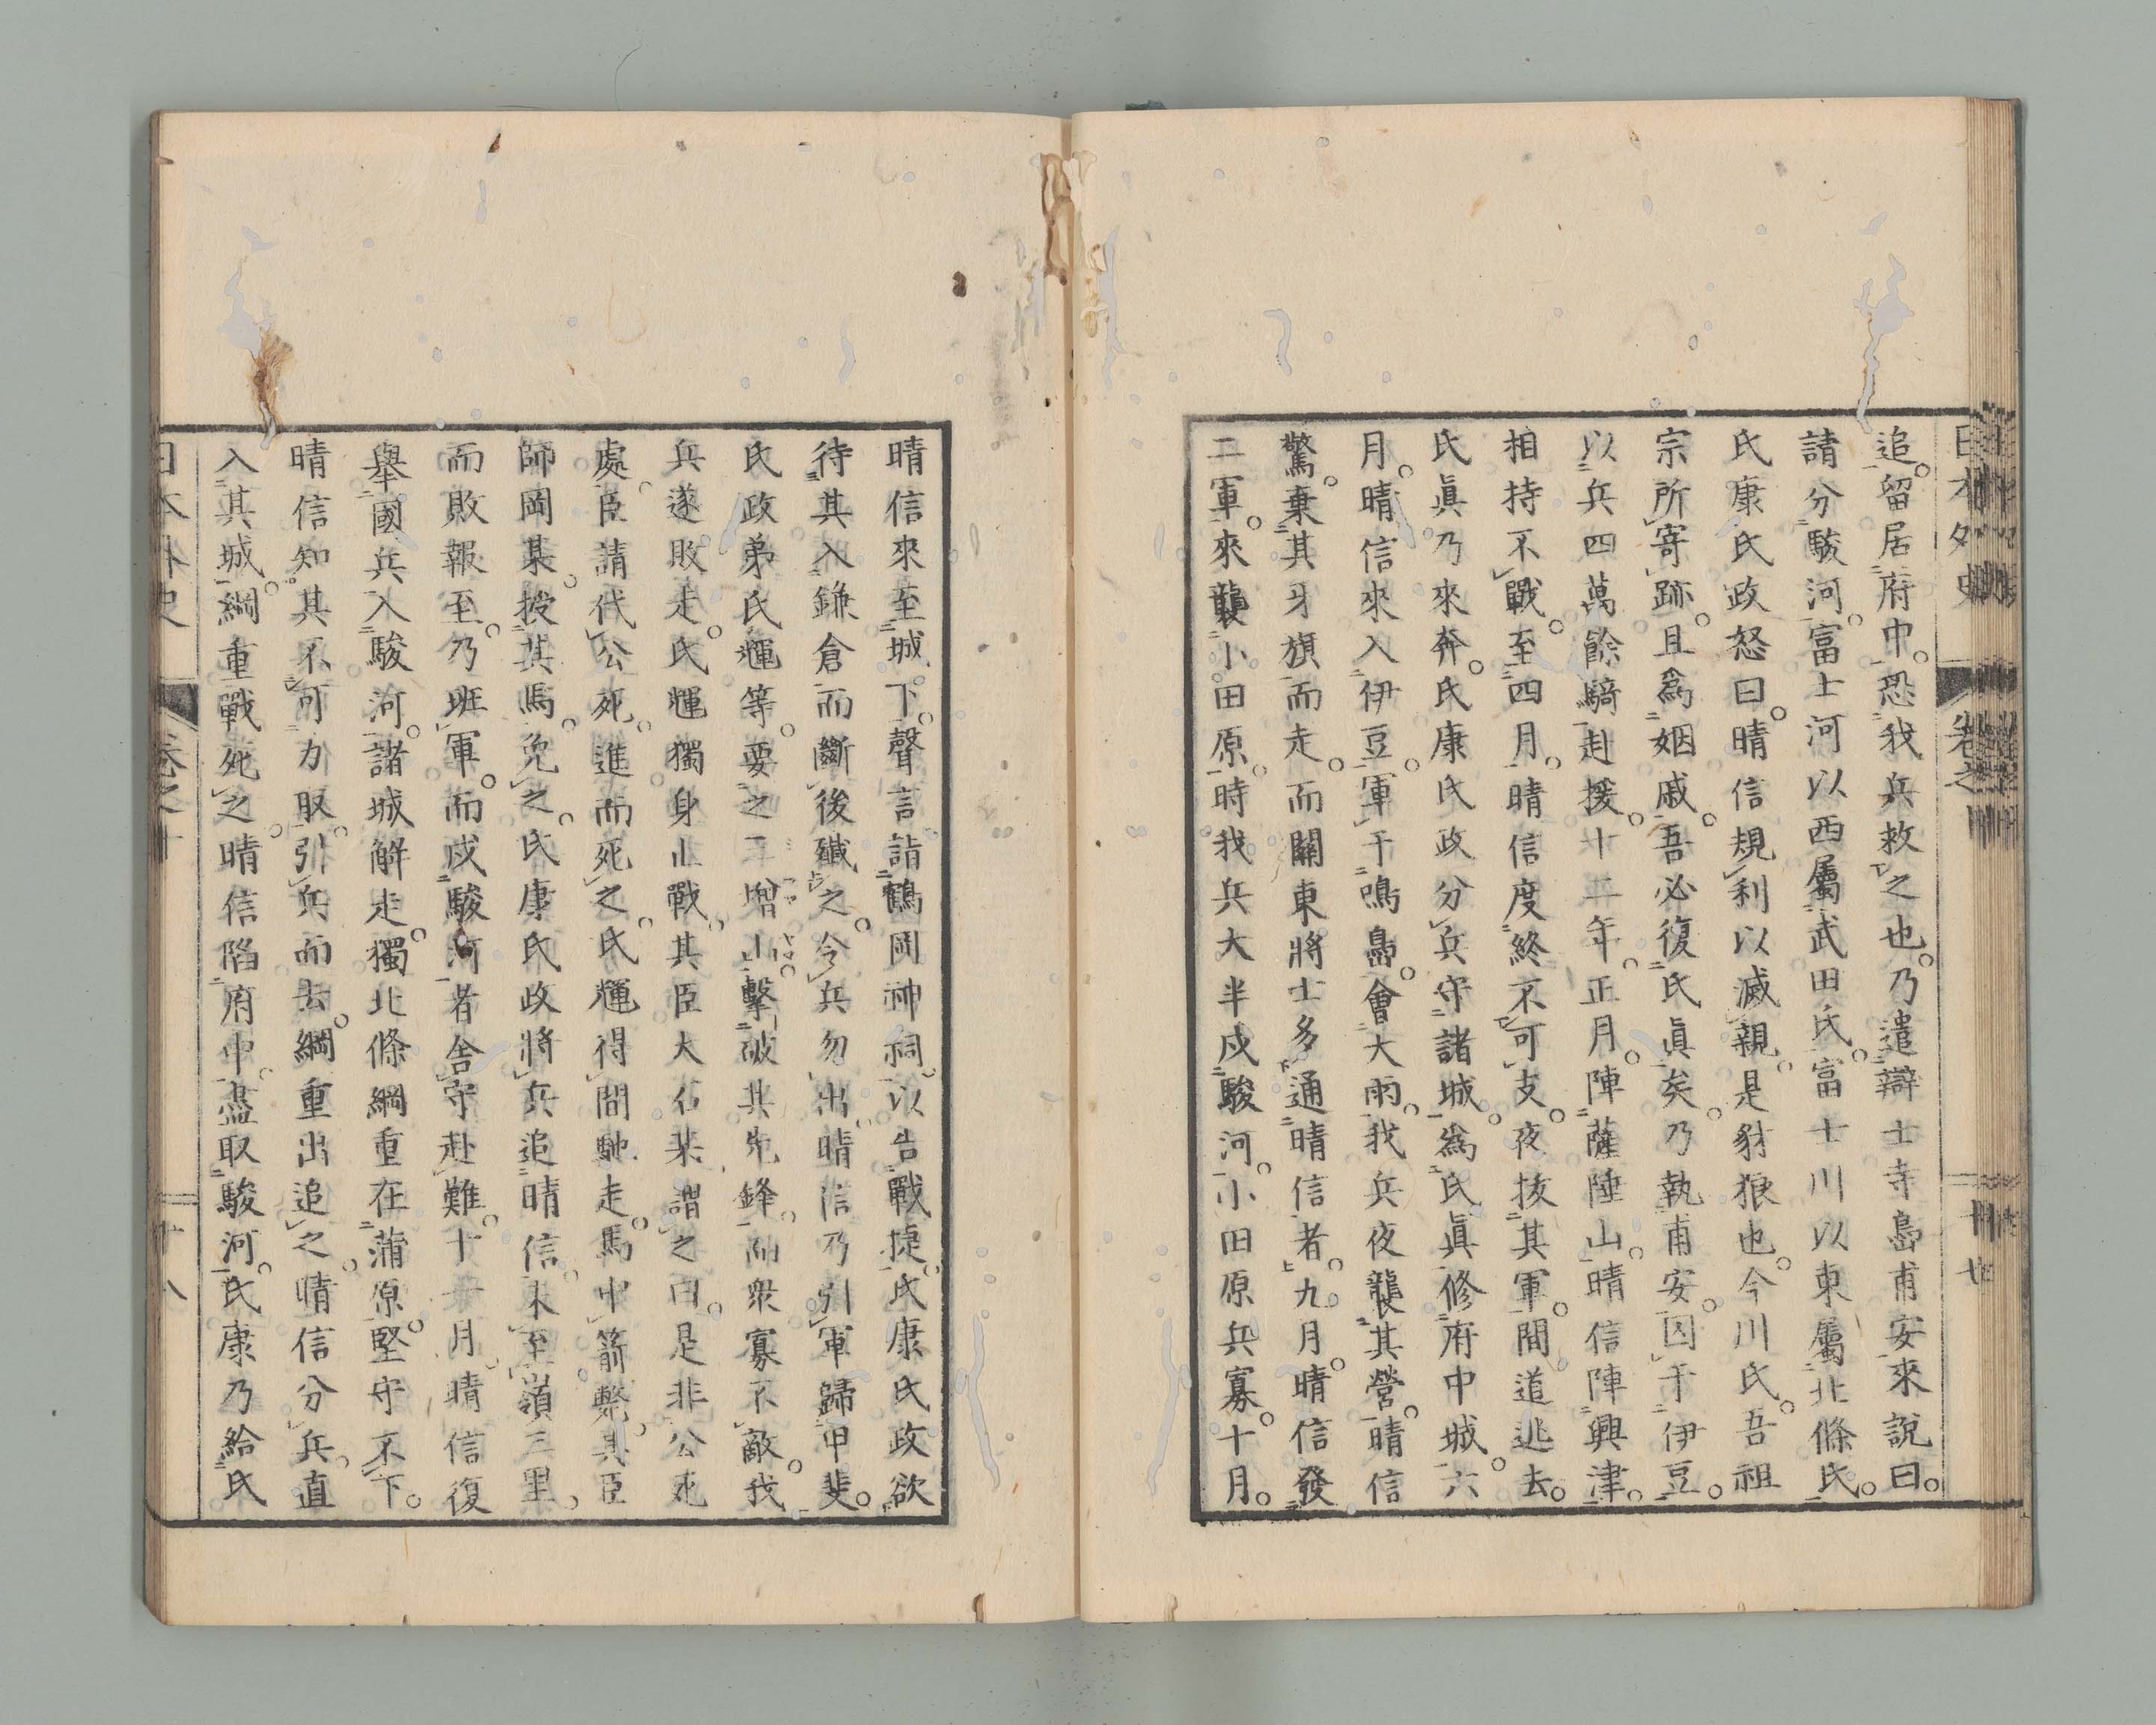 追。留居府中。恐我兵救之也。乃遣辯士寺島甫安來說曰。
請分駿河。富士河以西屬武田氏。富士川以東屬北條氏。
氏康氏政怒曰。晴信規利以滅親。是豺狼也。今川氏。吾祖
宗所寄跡。且爲姻戚。吾必復氏眞矣。乃執甫安。囚于伊豆。
以兵四萬餘騎赴援。十二年。正月。陣薩陲山。晴信陣興津。
相持不戰。至四月。晴信度終不可支。夜拔其軍。間道逃去。
氏眞乃來奔。氏康氏政分兵守諸城。爲氏眞修府中城。六
月。晴信來入伊豆。軍于鳴島。會大雨。我兵夜襲其營。晴信
驚。棄其牙旗而走。而關東將士多通晴信者。九月。晴信發
二軍。來襲小田原。時我兵大半戍駿河。小田原兵寡。十月。
晴信來至城下。聲言詣鶴岡神祠。以告戰捷。氏康氏政欲
待其入鎌倉而斷後殲之。令兵勿出。晴信乃引軍歸甲斐。
氏政弟氏輝等。要之三增山。擊破其先鋒。而衆寡不敵。我
兵遂敗走。氏輝獨身止戰。其臣大石某。謂之曰。是非公死
處。臣請代公死。進而死之。氏輝得間馳走。馬中箭斃。其臣
師岡某。授其馬。免之。氏康氏政將兵追晴信。未至嶺三里。
而敗報至。乃班軍。而戍駿河者舍守赴難。十一月。晴信復
舉國兵入駿河。諸城解走。獨北條綱重在蒲原。堅守不下。
晴信知其不可力取。引兵而去。綱重出追之。晴信分兵。直
入其城。綱重戰死之。晴信陷府中。盡取駿河。氏康乃給氏
日本外史 卷之十 十八